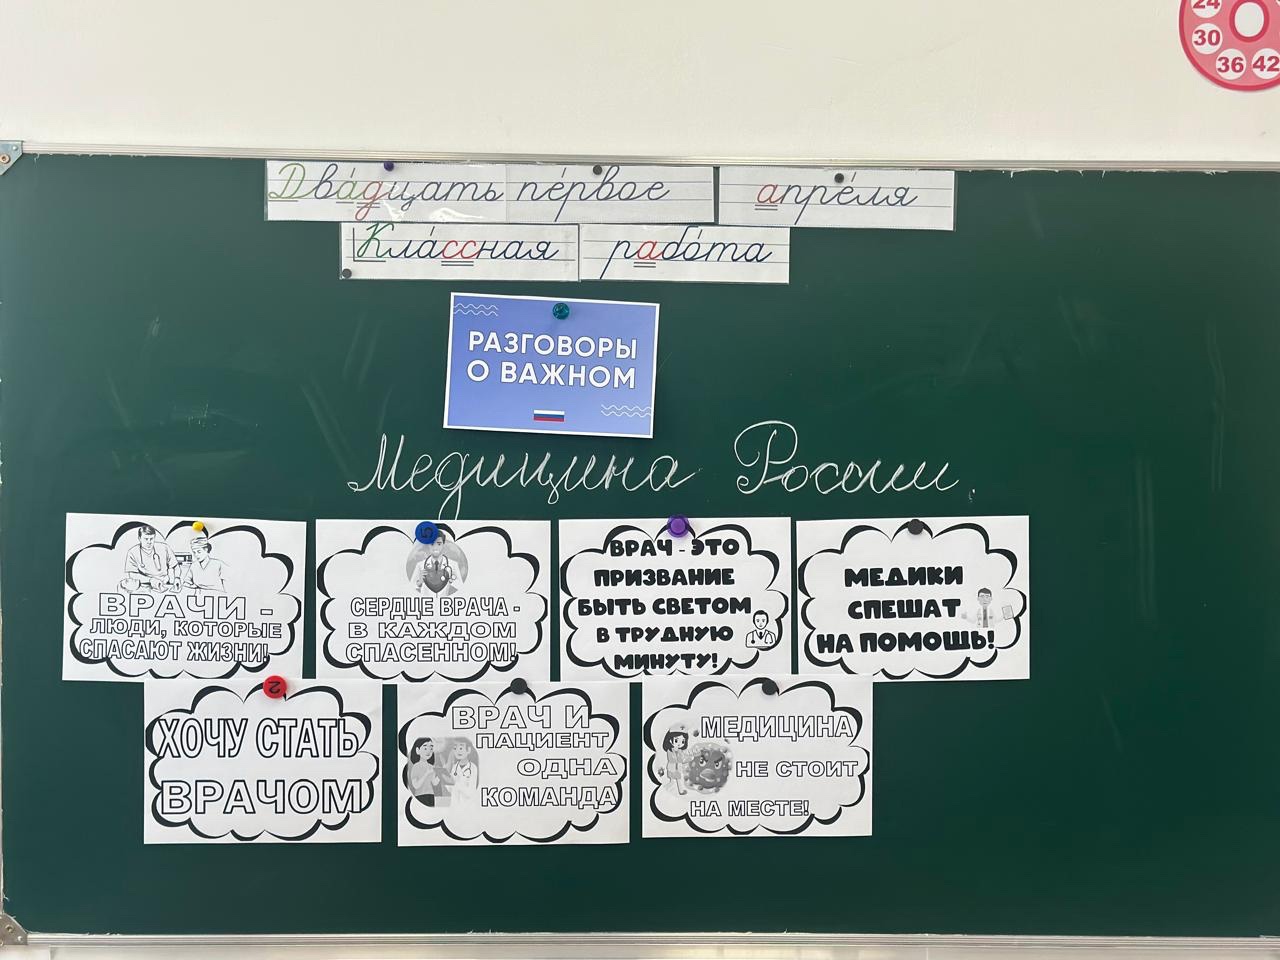 24
30
36 42
Двáдцать пéрвое апрéля
Клáссная рабóта
РАЗГОВОРЫ
О ВАЖНОМ
Медицина России.
ВРАЧИ -
ЛЮДИ, КОТОРЫЕ
СПАСАЮТ ЖИЗНИ!
5
СЕРДЦЕ ВРАЧА -
В КАЖДОМ
СПАСЕННОМ!
ВРАЧ - ЭТО
ПРИЗВАНИЕ
БЫТЬ СВЕТОМ
В ТРУДНУЮ
МИНУТУ!
МЕДИКИ
СПЕШАТ
НА ПОМОЩЬ!
2
ХОЧУ СТАТЬ
ВРАЧОМ
ВРАЧ И
ПАЦИЕНТ
ОДНА
КОМАНДА
МЕДИЦИНА
НЕ СТОИТ
НА МЕСТЕ!